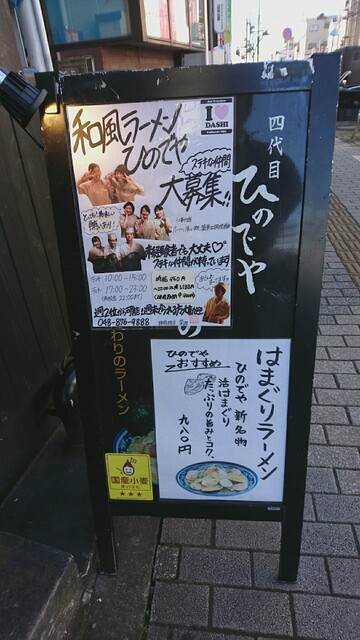 和風ラーメン
ひのでや
I
DASHI
ステキな仲間
大募集!!
未経験者でも大丈夫♡
ステキな仲間が待っています
10:00~15:00
17:00~23:00
048-876-4888
四代目
ひのでや
わりのラーメン
はまぐりラーメン
ひのでや 新名物
活はまぐり
たっぷりの旨みとコク、
九八〇円
ひのでや
おすすめ
国産小麦
★★★